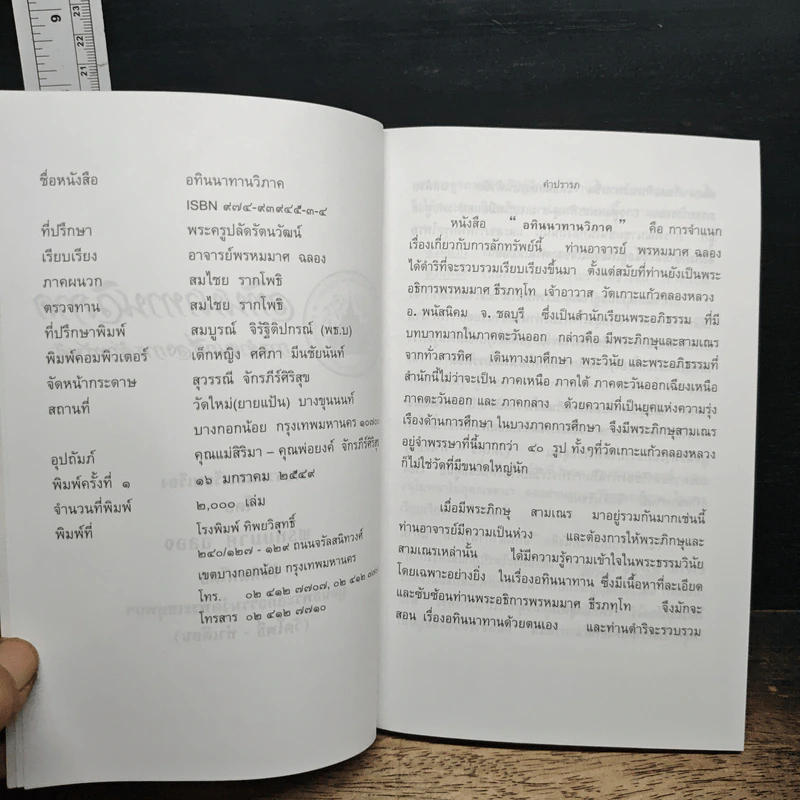 9
23
22
21
ชื่อหนังสือ อทินนาทานวิภาค
ISBN ๙๗๔-๙๓๙๔๕-๓-๔
ที่ปรึกษา พระครูปลัดรัตนวัฒน์
เรียบเรียง อาจารย์พรหมมาศ ฉลอง
ภาคผนวก สมไชย รากโพธิ
ตรวจทาน สมไชย รากโพธิ
ที่ปรึกษาพิมพ์ สมบูรณ์ จิรัฐิติปกรณ์ (พธ.บ)
พิมพ์คอมพิวเตอร์ เด็กหญิง ศศิภา มีนชัยนันท์
จัดหน้ากระดาษ สุวรรณี จักรภีร์ศิริสุข
สถานที่ วัดใหม่(ยายแป้น) บางขุนนนท์
บางกอกน้อย กรุงเทพมหานคร ๑๐๗๐๐
อุปถัมภ์ คุณแม่สิริมา – คุณพ่อยงค์ จักรภีร์ศิริสุข
พิมพ์ครั้งที่ ๑ ๑๖ มกราคม ๒๕๔๙
จำนวนที่พิมพ์ ๒,๐๐๐ เล่ม
พิมพ์ที่ โรงพิมพ์ ทิพยวิสุทธิ์
๒๔๐/๑๒๗ - ๑๒๙ ถนนจรัลสนิทวงศ์
เขตบางกอกน้อย กรุงเทพมหานคร
โทร. ๐๒ ๔๑๒ ๗๗๐๗, ๐๒ ๔๑๒
โทรสาร ๐๒ ๔๑๒ ๗๗๑๐
คำปรารภ
หนังสือ “ อทินนาทานวิภาค ” คือ การจำแนก
เรื่องเกี่ยวกับการลักทรัพย์นี้ ท่านอาจารย์ พรหมมาศ ฉลอง
ได้ดำริที่จะรวบรวมเรียบเรียงขึ้นมา ตั้งแต่สมัยที่ท่านยังเป็นพระ
อธิการพรหมมาศ ธีรภทฺโท เจ้าอาวาส วัดเกาะแก้วคลองหลวง
อ. พนัสนิคม จ. ชลบุรี ซึ่งเป็นสำนักเรียนพระอภิธรรม ที่มี
บทบาทมากในภาคตะวันออก กล่าวคือ มีพระภิกษุและสามเณร
จากทั่วสารทิศ เดินทางมาศึกษา พระวินัย และพระอภิธรรมที่
สำนักนี้ไม่ว่าจะเป็น ภาคเหนือ ภาคใต้ ภาคตะวันออกเฉียงเหนือ
ภาคตะวันออก และ ภาคกลาง ด้วยความที่เป็นยุคแห่งความรุ่ง
เรืองด้านการศึกษา ในบางภาคการศึกษา จึงมีพระภิกษุสามเณร
อยู่จำพรรษาที่นี่มากกว่า ๔๐ รูป ทั้งๆที่วัดเกาะแก้วคลองหลวง
ก็ไม่ใช่วัดที่มีขนาดใหญ่นัก
เมื่อมีพระภิกษุ สามเณร มาอยู่รวมกันมากเช่นนี้
ท่านอาจารย์มีความเป็นห่วง และต้องการให้พระภิกษุและ
สามเณรเหล่านั้น ได้มีความรู้ความเข้าใจในพระธรรมวินัย
โดยเฉพาะอย่างยิ่ง ในเรื่องอทินนาทาน ซึ่งมีเนื้อหาที่ละเอียด
และซับซ้อนท่านพระอธิการพรหมมาศ ธีรภทฺโท จึงมักจะ
สอน เรื่องอทินนาทานด้วยตนเอง และท่านดำริจะรวบรวม